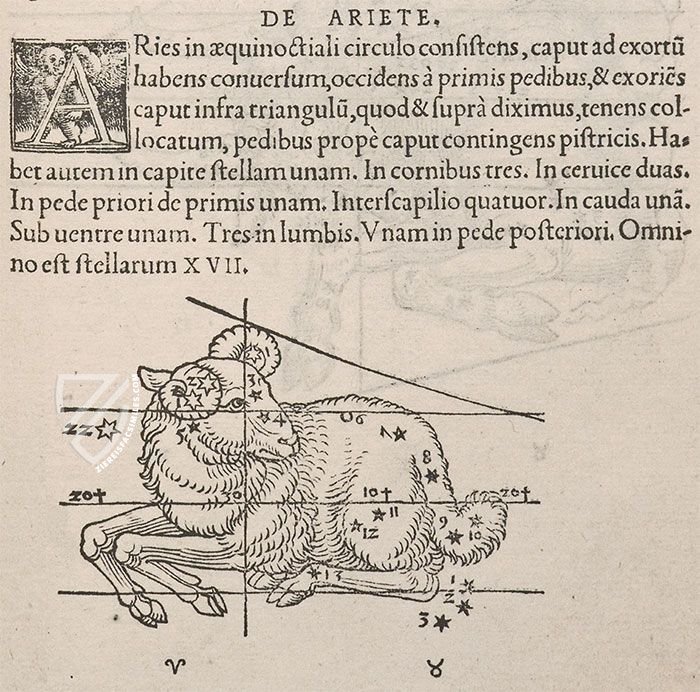 DE ARIETE.
ARies in æquinoctiali circulo consistens, caput ad exortũ
habens conuersum, occidens à primis pedibus, & exoriẽs
caput infra triangulũ, quod & suprà diximus, tenens col-
locatum, pedibus propè caput contingens pistricis. Ha-
bet autem in capite stellam unam. In cornibus tres. In ceruice duas.
In pede priori de primis unam. Interscapilio quatuor. In cauda unã.
Sub uentre unam. Tres in lumbis. Vnam in pede posteriori. Omni-
no est stellarum XVII.
3
4
06
7
22
8
20† 30 10† 20†
11
12 9 10
13 1
2
3
♈ ♉
ZIEREISFACSIMILES.COM